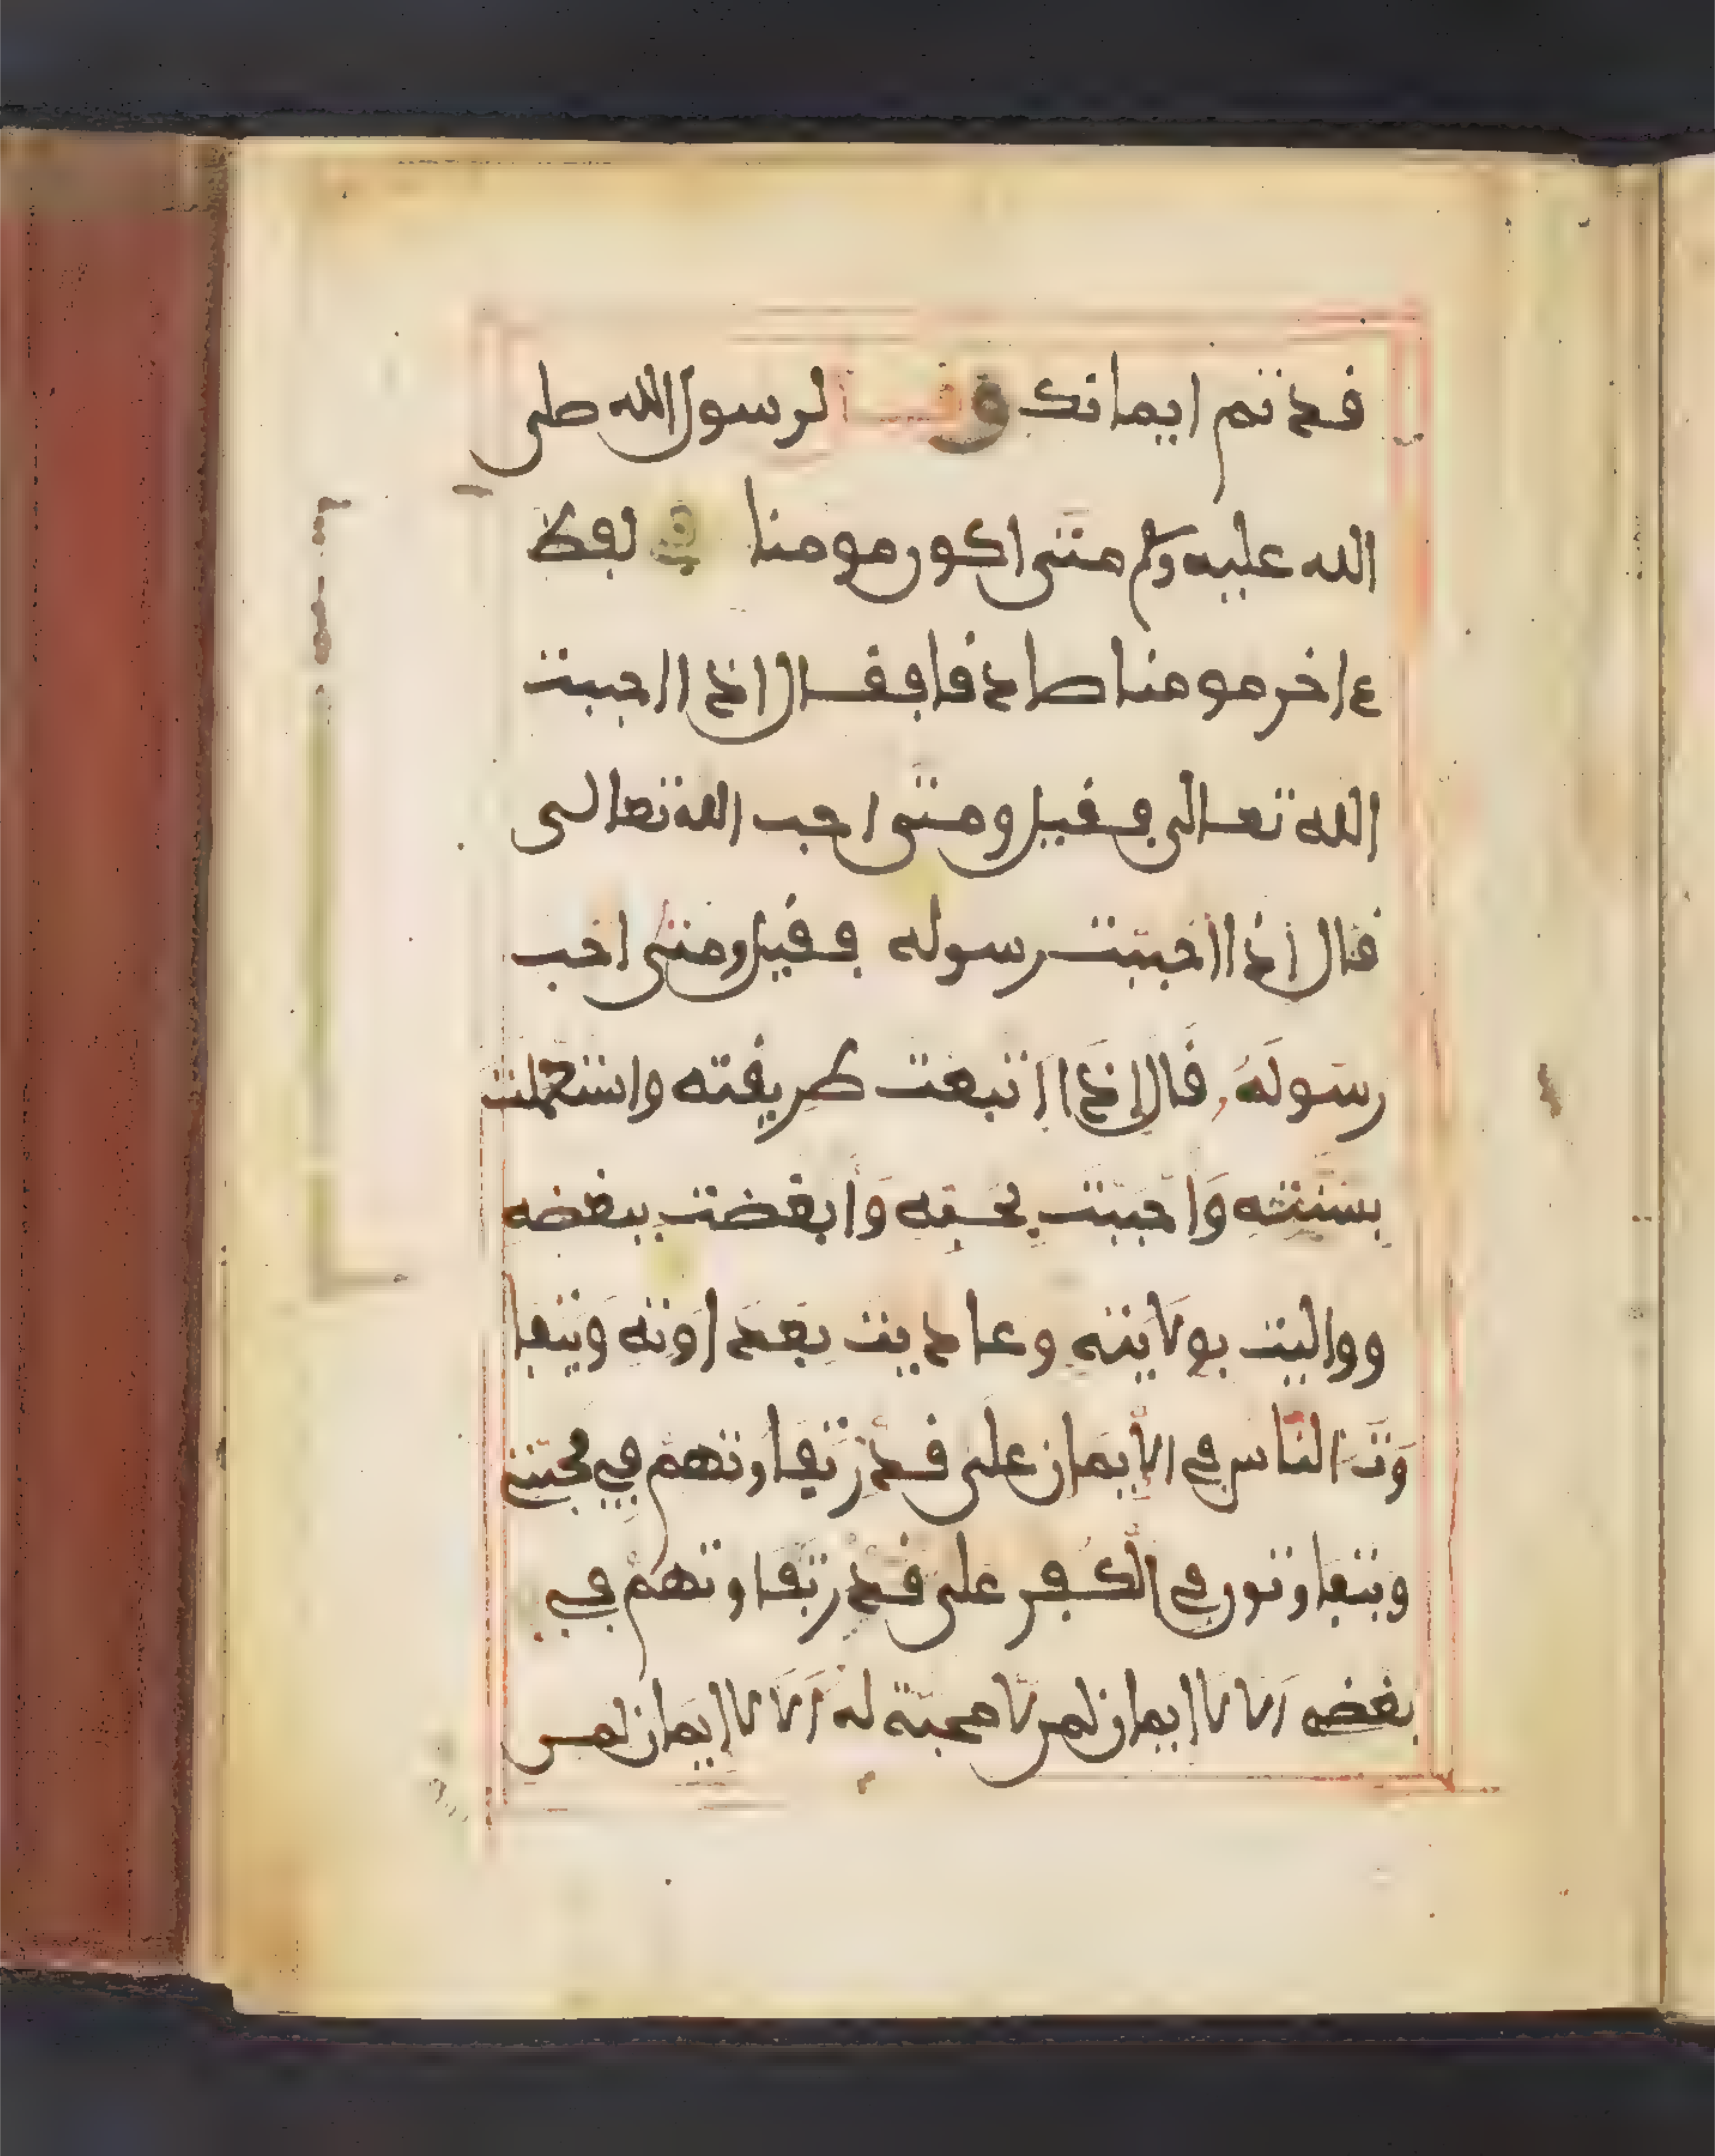 قد تم ايمانك وقيل لرسول الله صلى
الله عليه وسلم متى اكون مومنا وفي لفظ
ءاخر مومنا صادقا فقال اذا احببت
الله تعالى فقيل ومتى احب الله تعالى
قال اذا احببت رسوله فقيل ومتى احب
رسولَهُ قَال اِذَا اتبعت طريقته واستعملت
بسُنته وَاحببت بحبه وَابغضت ببغضه
وواليت بولايته وعاديت بعداوته وَيتفا
وَت النّاس في الاِيمَان على قدْر تفاوتهمْ في محبتي
ويتفاوتون في الْكُفر على قدْر تفاوتهمْ في
بغضي اَلا لا ايمان لمن لّا محبّة له اَلا لا ايمَان لمن